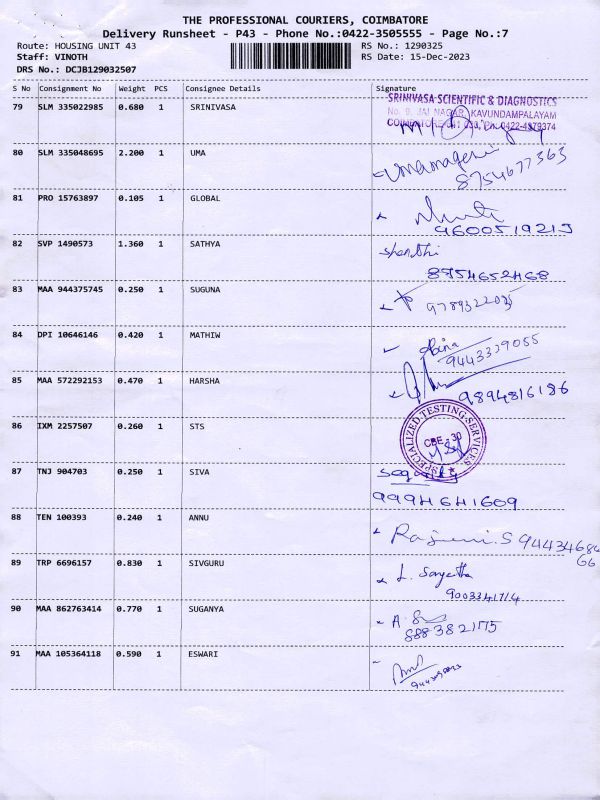 THE PROFESSIONAL COURIERS, COIMBATORE
Delivery Runsheet - P43 - Phone No.:0422-3505555 - Page No.:7
Route: HOUSING UNIT 43 RS No.: 1290325
Staff: VINOTH RS Date: 15-Dec-2023
DRS No.: DCJB129032507
S No Consignment No Weight PCS Consignee Details Signature
79 SLM 335022985 0.680 1 SRINIVASA
SRINIVASA SCIENTIFIC & DIAGNOSTICS
No. 9, JAI NAGAR, KAVUNDAMPALAYAM
80 SLM 335048695 2.200 1 UMA
Umamageni
8754677363
81 PRO 15763897 0.105 1 GLOBAL
9600519213
82 SVP 1490573 1.360 1 SATHYA
Shanthi
8754652468
83 MAA 944375745 0.250 1 SUGUNA
84 DPI 10646146 0.420 1 MATHIW
9443339055
85 MAA 572292153 0.470 1 HARSHA
9894816186
86 IXM 2257507 0.260 1 STS
SPECIALIZED TESTING SERVICES
CBE - 30
87 TNJ 904703 0.250 1 SIVA
9994641609
88 TEN 100393 0.240 1 ANNU
89 TRP 6696157 0.830 1 SIVGURU
L. Sangetha
9003341714
90 MAA 862763414 0.770 1 SUGANYA
91 MAA 105364118 0.590 1 ESWARI